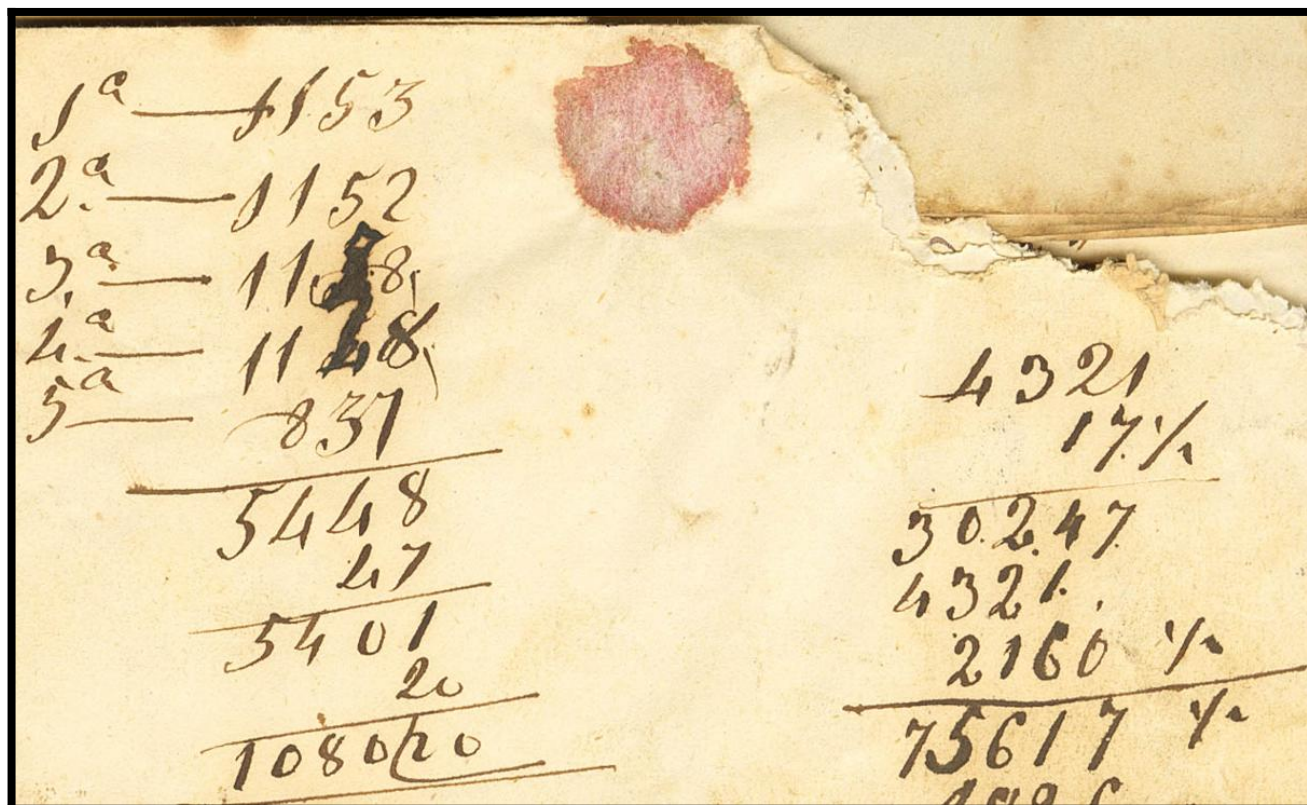 1ª — 1153
2.ª — 1152
3.ª —
4.ª — 1148
5ª — 837
5448
47
5401
20
108020
4321
17.½
30.2.47
4321.
2160 ½
75617 ½